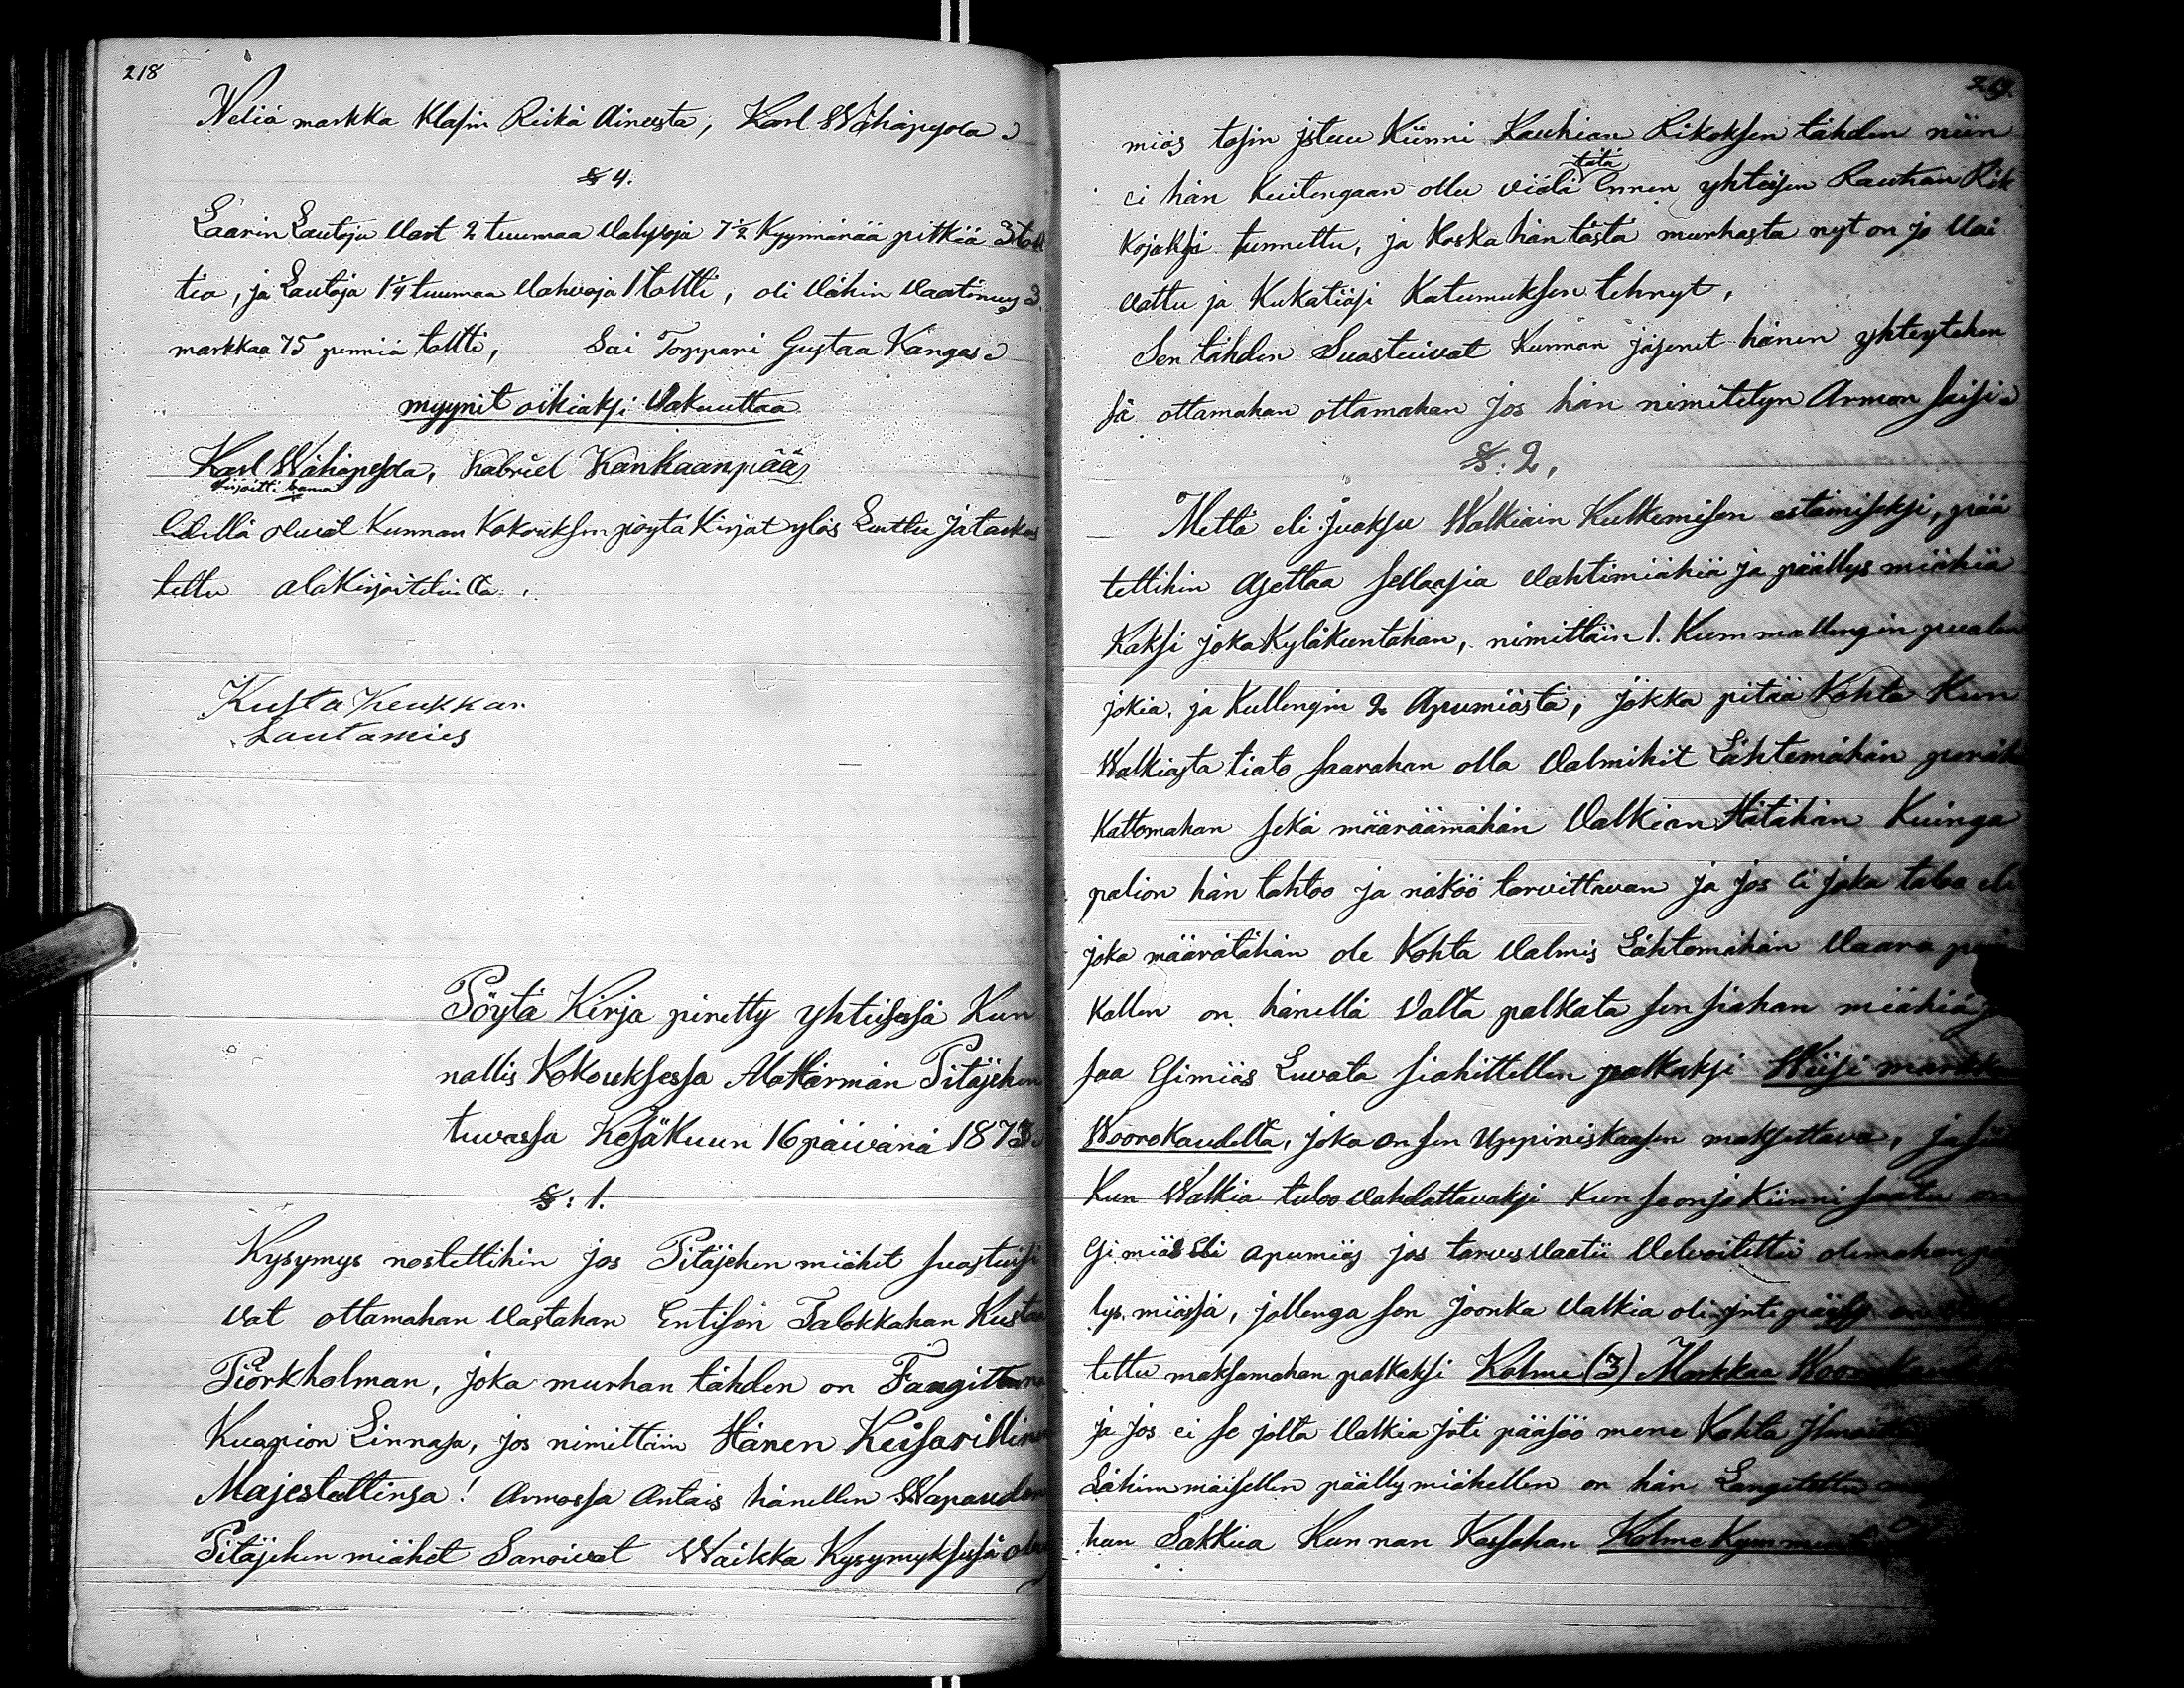 218
Neliä markka Klasin Reikä Aineesta, Karl Wähäpesola
§ 4.
Laarin Lautoja Vast 2 tuumaa Vahvoja 7½ Kyynärää pitkiä 3 tolt
tia, ja Lautoja 1¼ tuumaa Vahvoja 1 toltti, oli Vähin Vaatinus 3
markkaa 75 penniä toltti, Sai Torppari Gustaa Kangas
myynit oikiaksi Vakuuttaa
Karl Wähäpesola, Kabriel Kankaanpää,
kirjoitti
Edellä olevat Kunnan Kokouksen pöytä Kirjat ylös Luettu ja tarkas
tettu alakirjoitetuilta
Kusta Keukkar
Lautamies
Pöytä Kirja piretty yhteisesä Kun
nallis Kokouksessa AlaHärmän Pitäjehen
tuvassa Kesäkuun 16 päivänä 1873
§: 1.
Kysymys nostettihin jos Pitäjehen miähet suastuisi
vat ottamahan Vastahan Entisen Talokkahan Kustaa
Piörkholman, joka murhan tähden on Faagittuna
Kuapion Linnasa, jos nimittäin Hänen Keisarillinen
Majestettinsa! Armossa Antais hänellen Wapauden
Pitäjehen miähet Sanoivat Waikka Kysymyksesä oleva
219.
miäs tosin jstuu Kiinni Kauhian Rikoksen tähden niin
tätä
ei hän Kuitengaan ollu viälä Ennen yhteisen Rauhan Rik
kojaksi tunnettu, ja Koska hän tästä murhasta nyt on jo Vai
vattu ja Kukatiäsi Katumuksen tehnyt,
Sen tähden Suastuivat Kunnan jäsenet hänen yhteytehen
sä ottamahan ottamahan jos hän nimitetyn Armon saisi
§: 2,
Mettä eli juoksu Walkiain Kulkemisen estämiseksi, pää
tettihin Asettaa sellaasia Vahtimiähiä ja päällys miähiä
Kaksi joka Kyläkuntahan, nimittäin 1. Kummallengin puolen
jokia, ja Kullengin 2 Apumiästä, jokka pitää Kohta Kun
Walkiasta tiato saarahan olla Valmihit Lähtemähän peräh
Kattomahan sekä määräämähän Valkian Hätähän Kuinga
palion hän tahtoo ja näköö tarvittavan ja jos ei joka taloo eli
joka määrätähän ole Kohta Valmis Lähtemähän Vaara
kallen on hänellä Valta palkata sen siahan miähiä
saa Esimiäs Luvata siahittellen palkaksi Wiisi markkaa
Woorokaudelta, joka on sen Uppiniskaasen maksettava,
Kun Walkia tuloo Vahdattavaksi Kun se on jo Kiinni saatu on
Esimiäs Eli apumiäs jos tarves Vaatii Velvoitettu olemahan pääl
lys miässä, jollenga sen joonka Valkia oli jrti pääsy on
tettu maksamahan palkaksi Kolme (3) Markkaa Woorokaudelta
ja jos ei se jolta Valkia jrti pääsöö mene Kohta jlmoitta
Lähimmäisellen päällymiähellen on hän Langetettu
han Sakkua Kunnan Kassahan Kolme Kymmentä